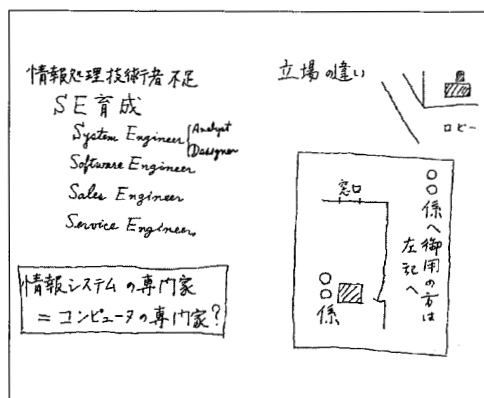 情報処理技術者不足
SE育成
System Engineer { Analyst
Designer
Software Engineer
Sales Engineer
Service Engineer
情報システムの専門家
=コンピュータの専門家?
立場の違い
ロビー
○○係へ御用の方は
左記へ
窓口
○○係